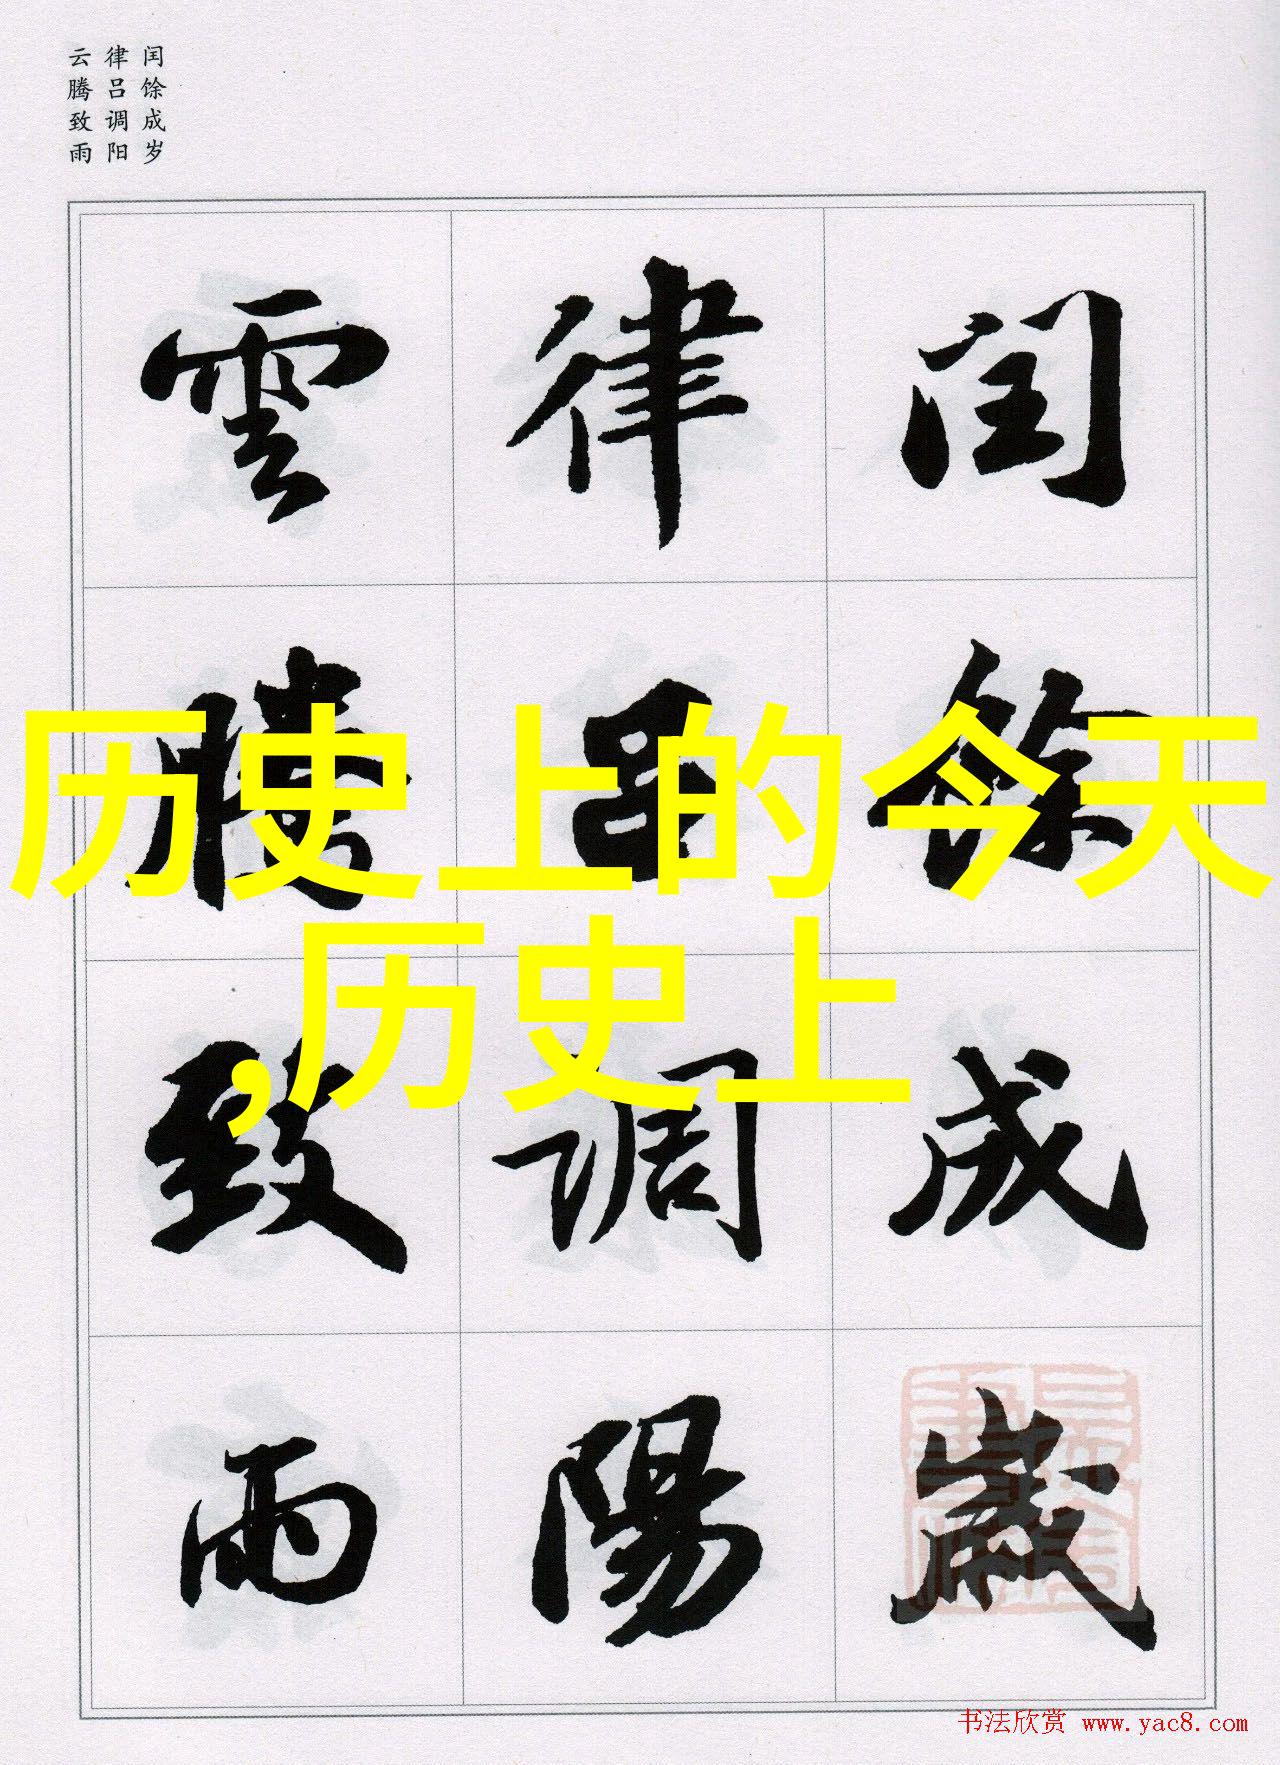 闰馀成岁
律吕调阳
云腾致雨
閏餘成歲
律吕調陽
雲騰致雨
历史上的今天
,历史上
书法欣赏 www.yac8.com